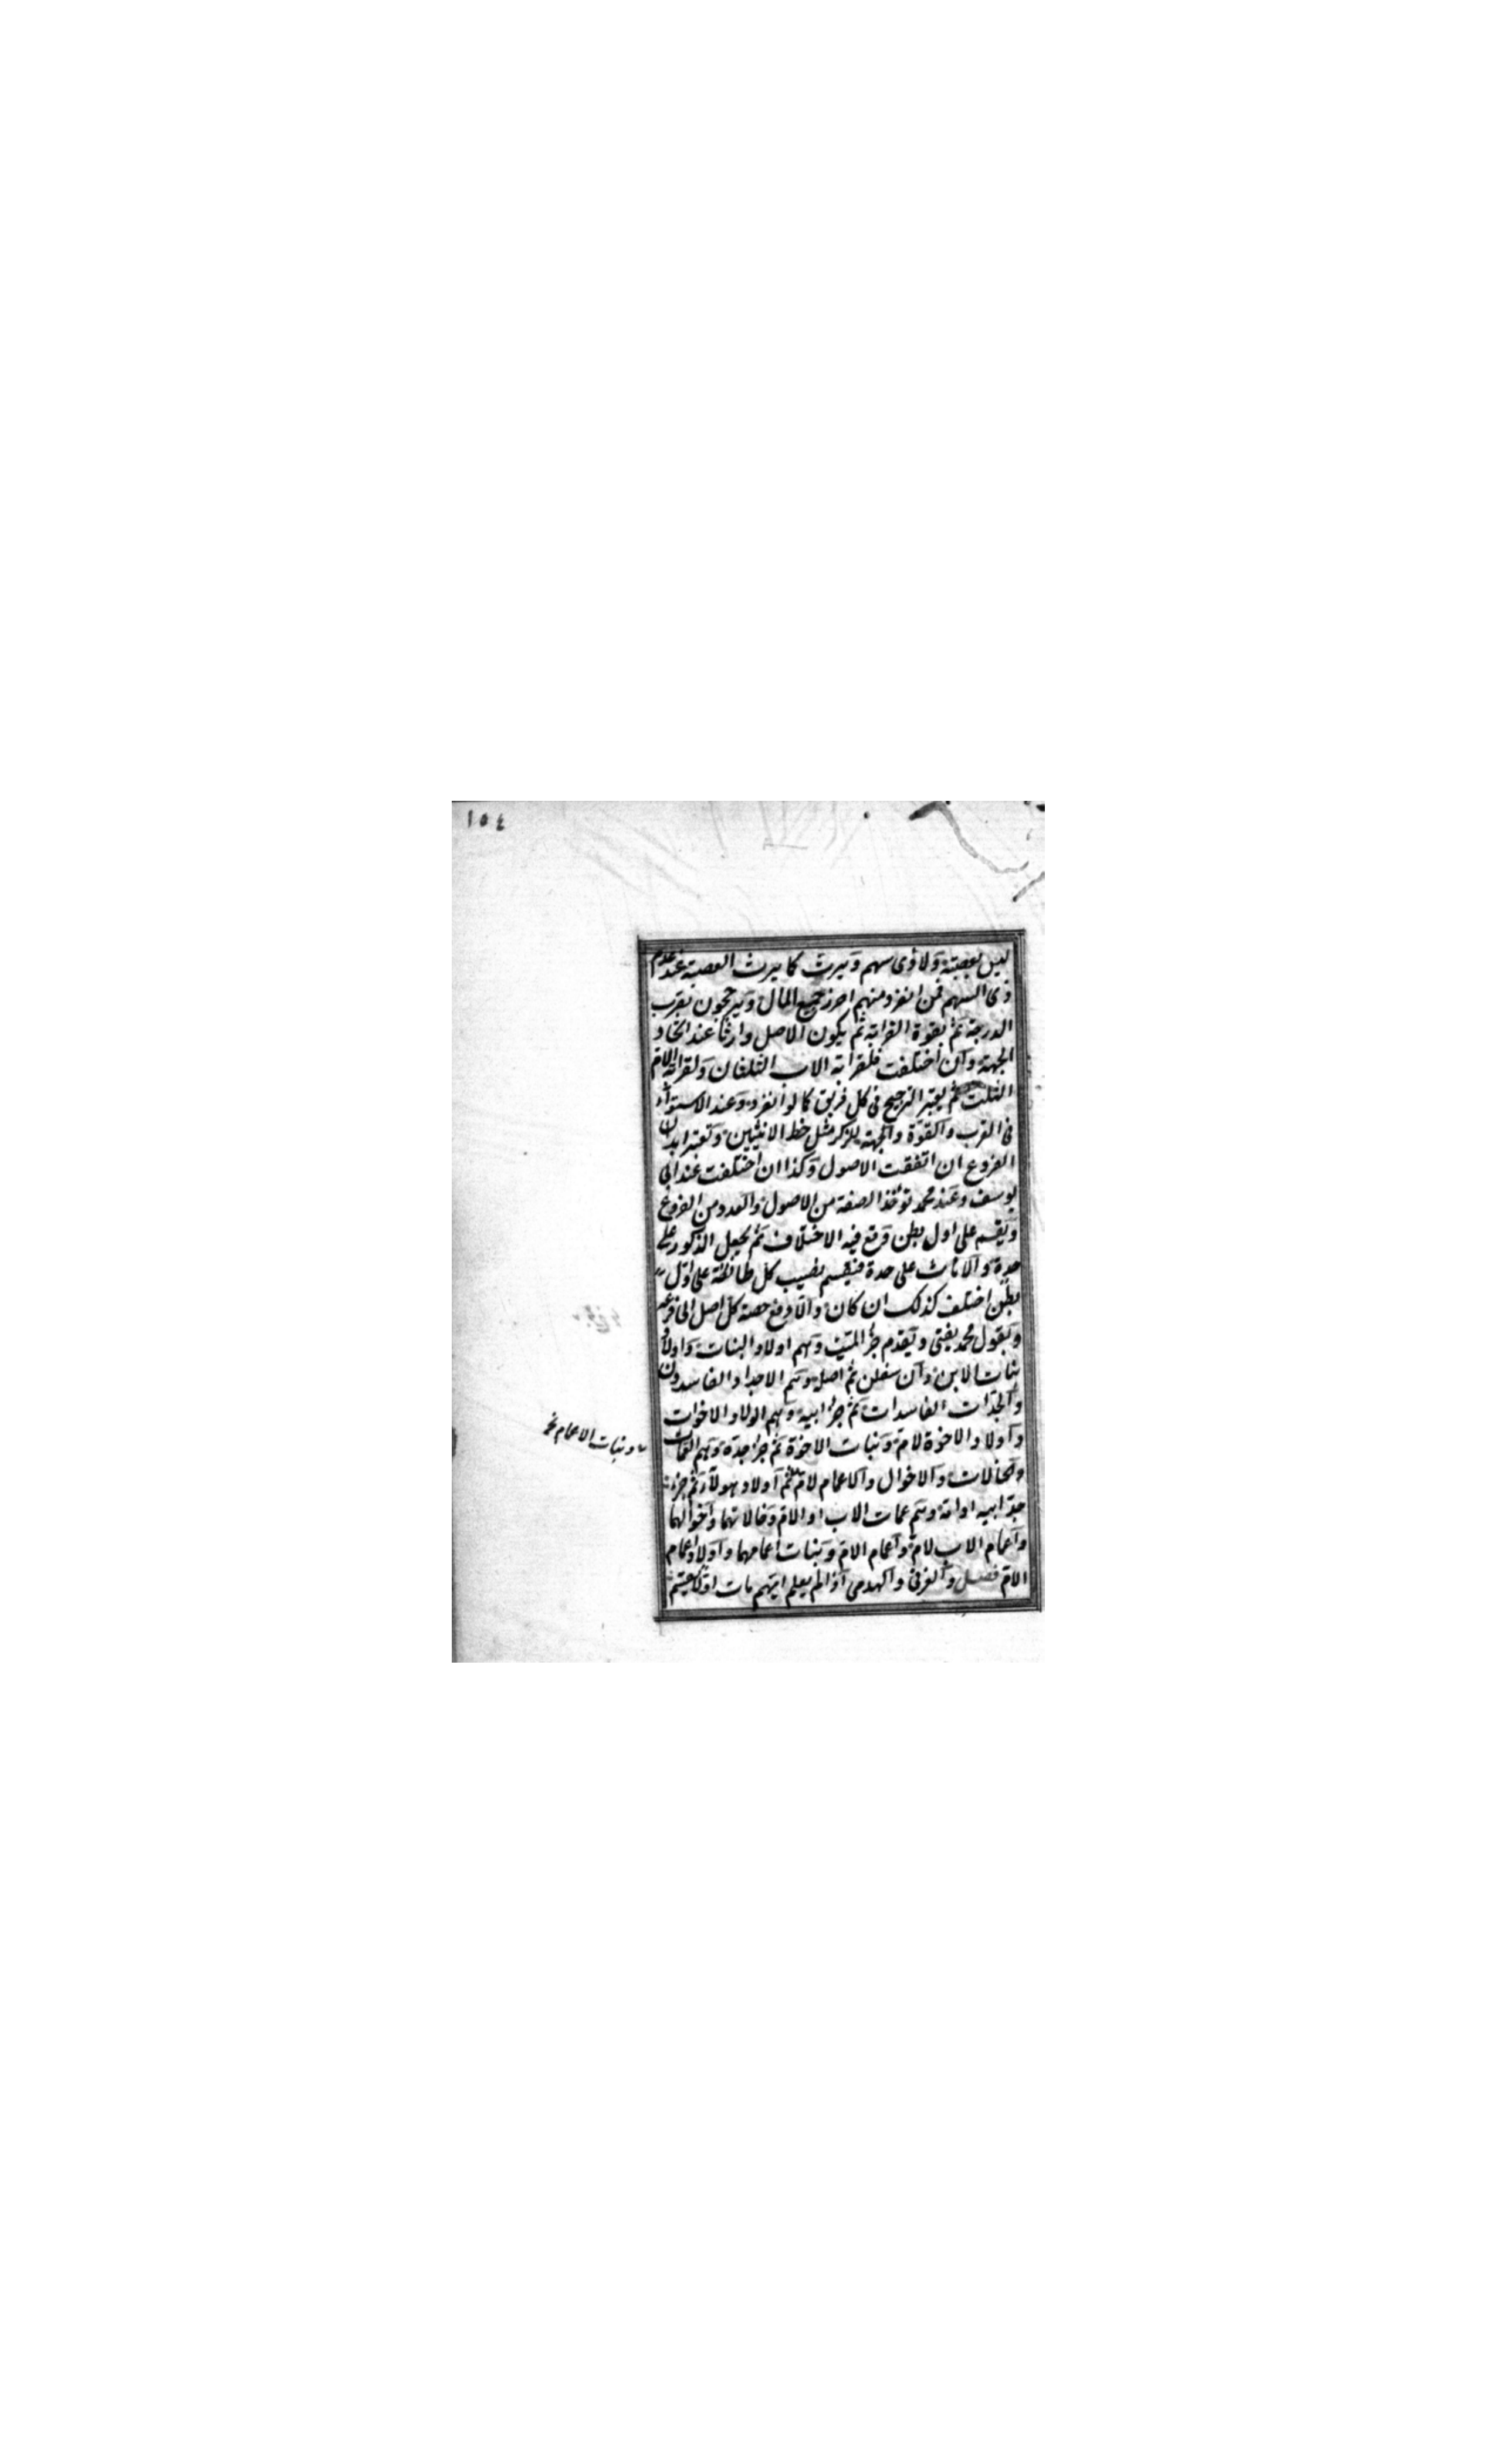 ١٥٤
ليس بعصبة ولا ذى سهم ويرث كما يرث العصبة عند عدم
ذى السهم فمن انفرد منهم احرز جميع المال ويرجحون بقرب
الدرجة ثم بقوة القرابة ثم بكون الاصل وارثا عند اتحاد
الجهة وان اختلفت فلقرابة الاب الثلثان ولقرابة الام
الثلث ثم يعتبر الترجيح فى كل فريق كما لو انفرد وعند الاستواء
فى القرب والقوة والجهة للذكر مثل حظ الانثيين وتعتبر ابدان
الفروع ان اتفقت الاصول وكذا ان اختلفت عند ابى
يوسف وعند محمد تؤخذ الصفة من الاصول والعدد من الفروع
ويقسم على اول بطن وقع فيه الاختلاف ثم يجعل الذكور على
حدة والاناث على حدة فيقسم نصيب كل طائفة على اول
بطن اختلف كذلك ان كان والا دفع حصة كل اصل الى فرعه
وبقول محمد يفتى ويقدم جزء الميت وهم اولاد البنات واولاد
بنات الابن وان سفلن ثم اصله وهم الاجداد الفاسدون
والجدات الفاسدات ثم جزء ابيه وهم اولاد الاخوات
واولاد الاخوة لام وبنات الاخوة ثم جزء جده وهم العمات
والخالات والاخوال والاعمام لام ثم اولاد هولاء ثم جزء
جد ابيه او امه وهم عمات الاب او الام وخالاتهما واخوالهما
واعمام الاب لام واعمام الام وبنات اعمامهما واولاد اعمام
الام فصل والغرقى والهدمى اذا لم يعلم ايهم مات اولا يقسم
وبنات الاعمام